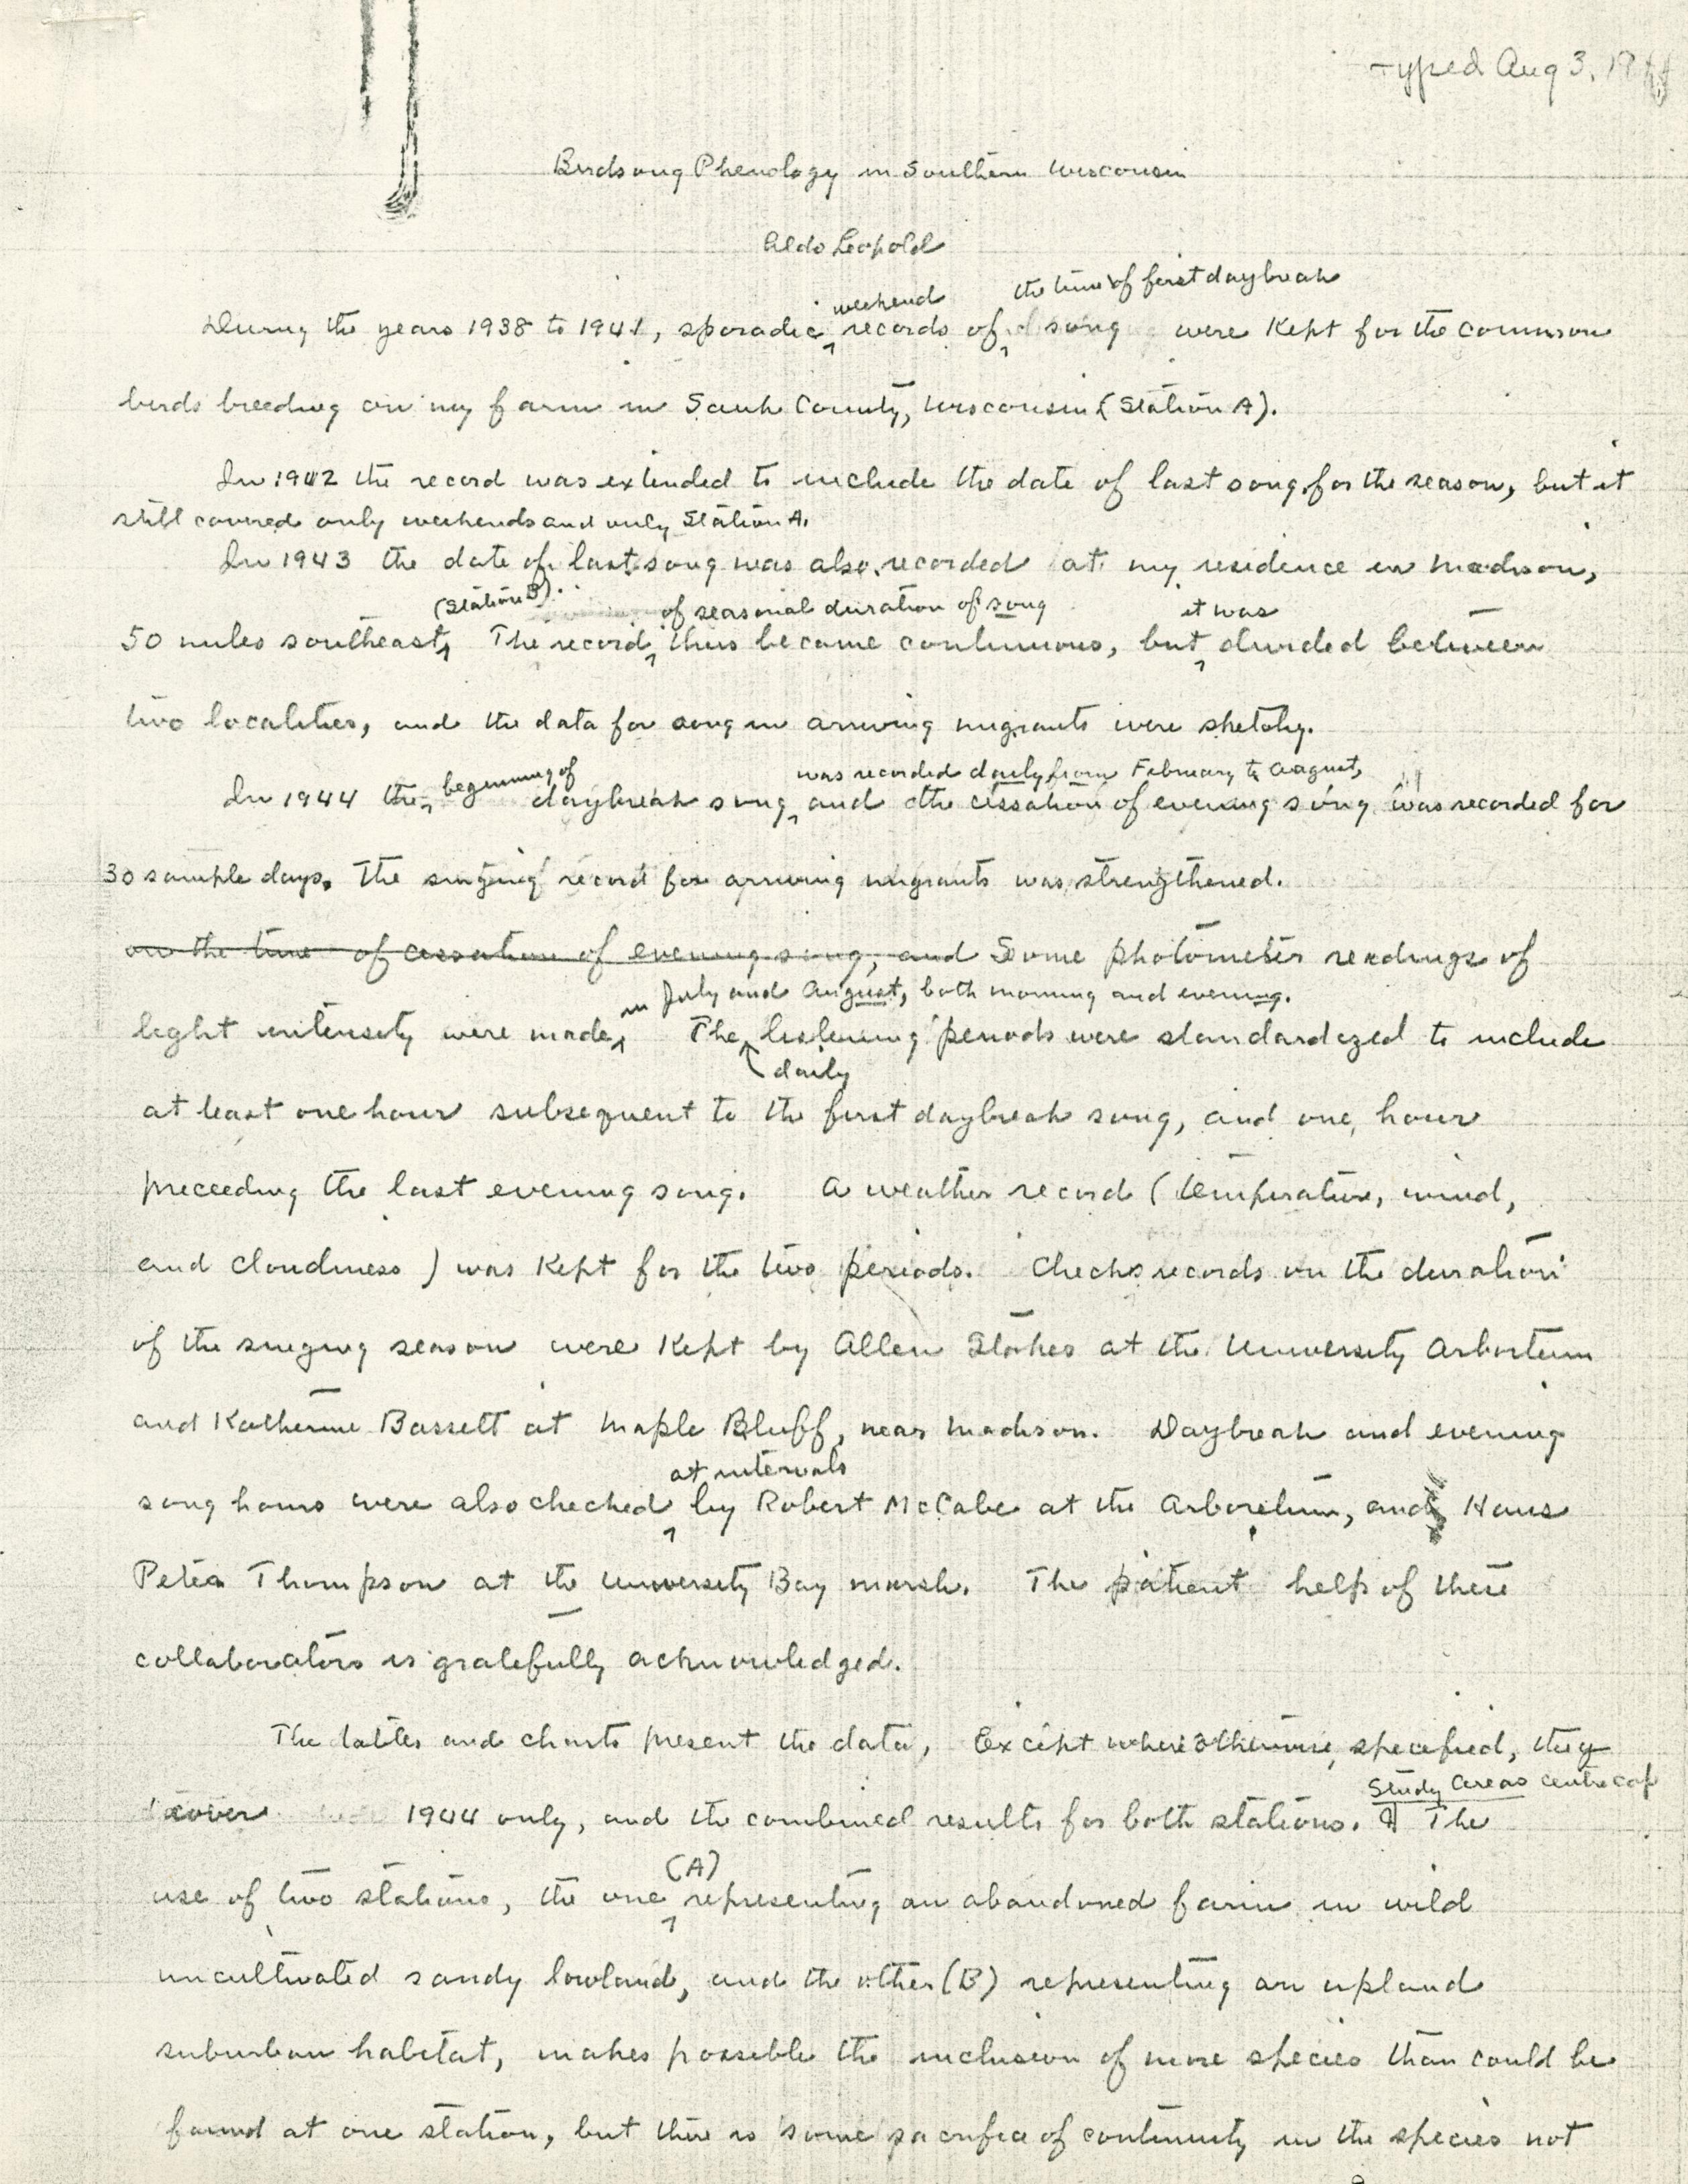 Typed Aug 3, 19
Birdsong Phenology in Southern Wisconsin
Aldo Leopold
weekend the time of first daybreak
During the years 1938 to 1941, sporadic records of song were kept for the common
birds breeding on my farm in Sauk County, Wisconsin (Station A).
In 1942 the record was extended to include the date of last song for the season, but it
still covered only weekends and only Station A.
In 1943 the date of last song was also recorded at my residence in Madison,
(Station B). of seasonal duration of song it was
50 miles southeast, The record thus became continuous, but divided between
two localities, and the data for song in arriving migrants were sketchy.
beginning of was recorded daily from February to August,
In 1944 the daybreak song and the cessation of evening song was recorded for
30 sample days. The singing record for arriving migrants was strengthened.
on the time of cessation of evening song, and Some photometer readings of
in July and August, both morning and evening.
light intensity were made, The listening periods were standardized to include
daily
at least one hour subsequent to the first daybreak song, and one hour
preceeding the last evening song. A weather record (temperature, wind,
and cloudiness) was kept for the two periods. Check records on the duration
of the singing season were kept by Allen Stokes at the University Arboretum
and Katherine Bassett at Maple Bluff, near Madison. Daybreak and evening
at intervals
song hours were also checked by Robert McCabe at the Arboretum, and Hans
Peter Thompson at the University Bay marsh. The patient help of these
collaborators is gratefully acknowledged.
The tables and charts present the data, Except where otherwise specified, they
Study Areas centre cap
cover 1944 only, and the combined results for both stations. ¶ The
(A)
use of two stations, the one representing an abandoned farm in wild
uncultivated sandy lowland, and the other (B) representing an upland
suburban habitat, makes possible the inclusion of more species than could be
found at one station, but there is some sacrifice of continuity in the species not